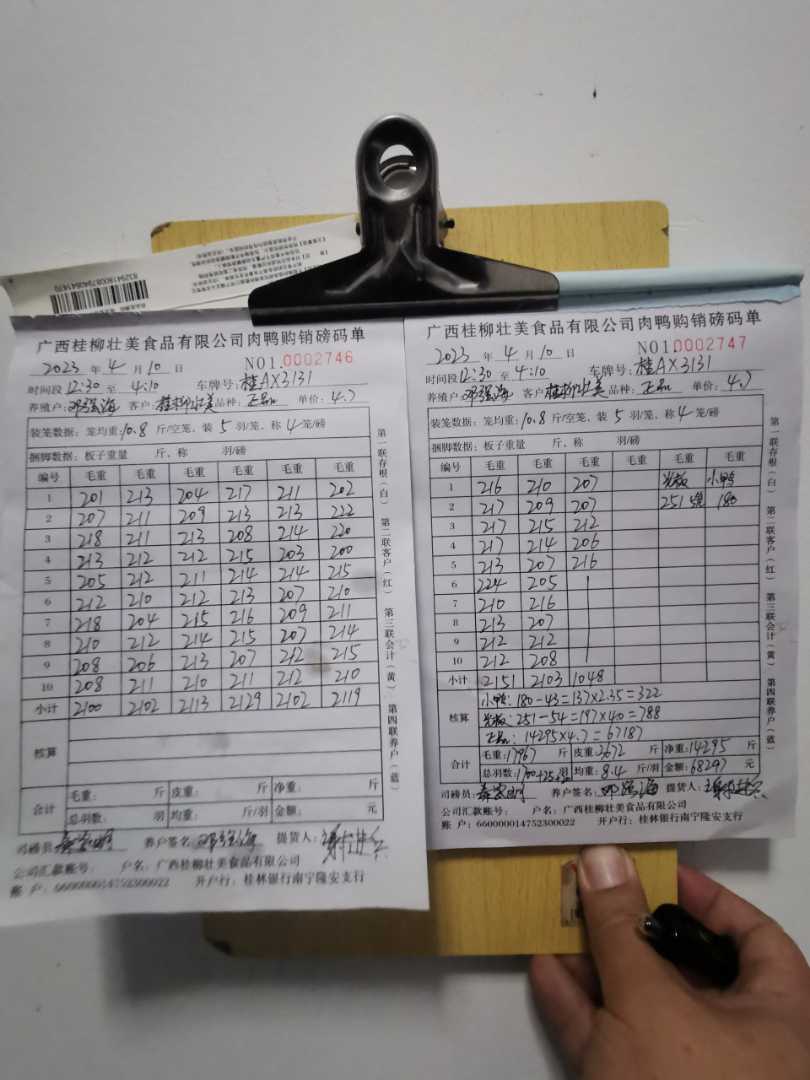 63294190087940841670
广西桂柳壮美食品有限公司肉鸭购销磅码单
2023 年 4 月 10 日 NO1.0002746
时间段12:30 至 4:10 车牌号:桂AX3131
养殖户:邓强海 客户:桂柳壮美 品种:正品 单价:4.7
装笼数据:笼均重:10.8 斤/空笼、装 5 羽/笼、称 4 笼/磅
捆脚数据:板子重量 斤、称 羽/磅
编号 毛重 毛重 毛重 毛重 毛重 毛重
1 201 213 204 217 211 202
2 207 211 209 213 213 222
3 218 211 213 208 214 220
4 213 212 212 215 203 200
5 205 212 211 214 214 215
6 212 210 212 213 207 210
7 218 204 215 216 209 211
8 210 212 214 215 207 214
9 208 206 213 207 212 215
10 208 211 210 211 212 210
小计 2100 2102 2113 2129 2102 2119
核算
合计 毛重: 斤 皮重: 斤 净重: 斤
总羽数: 羽 均重: 斤/羽 金额: 元
司磅员: 养户签名:邓强海 提货人:
公司汇款账号: 户名:广西桂柳壮美食品有限公司
账 户:660000014752300022 开户行:桂林银行南宁隆安支行
第一联存根(白) 第二联客户(红) 第三联会计(黄) 第四联养户(蓝)
广西桂柳壮美食品有限公司肉鸭购销磅码单
2023 年 4 月 10 日 NO1.0002747
时间段12:30 至 4:10 车牌号:桂AX3131
养殖户:邓强海 客户:桂柳壮美 品种:正品 单价:4.7
装笼数据:笼均重:10.8 斤/空笼、装 5 羽/笼、称 4 笼/磅
捆脚数据:板子重量 斤、称 羽/磅
编号 毛重 毛重 毛重 毛重 毛重 毛重
1 216 210 207 小鸭
2 217 209 207 251 180
3 217 215 212
4 217 214 206
5 213 207 216
6 224 205
7 210 216
8 213 207
9 212 212
10 212 208
小计 2151 2103 1048
核算 小鸭:180-43=137×2.35=322
251-54=197×40=788
正品:14295×4.7=67187
合计 毛重:17967 斤 皮重:3672 斤 净重:14295 斤
总羽数: 羽 均重:8.4 斤/羽 金额:68297 元
司磅员: 养户签名:邓强海 提货人:
公司汇款账号: 户名:广西桂柳壮美食品有限公司
账 户:660000014752300022 开户行:桂林银行南宁隆安支行
第一联存根(白) 第二联客户(红) 第三联会计(黄) 第四联养户(蓝)